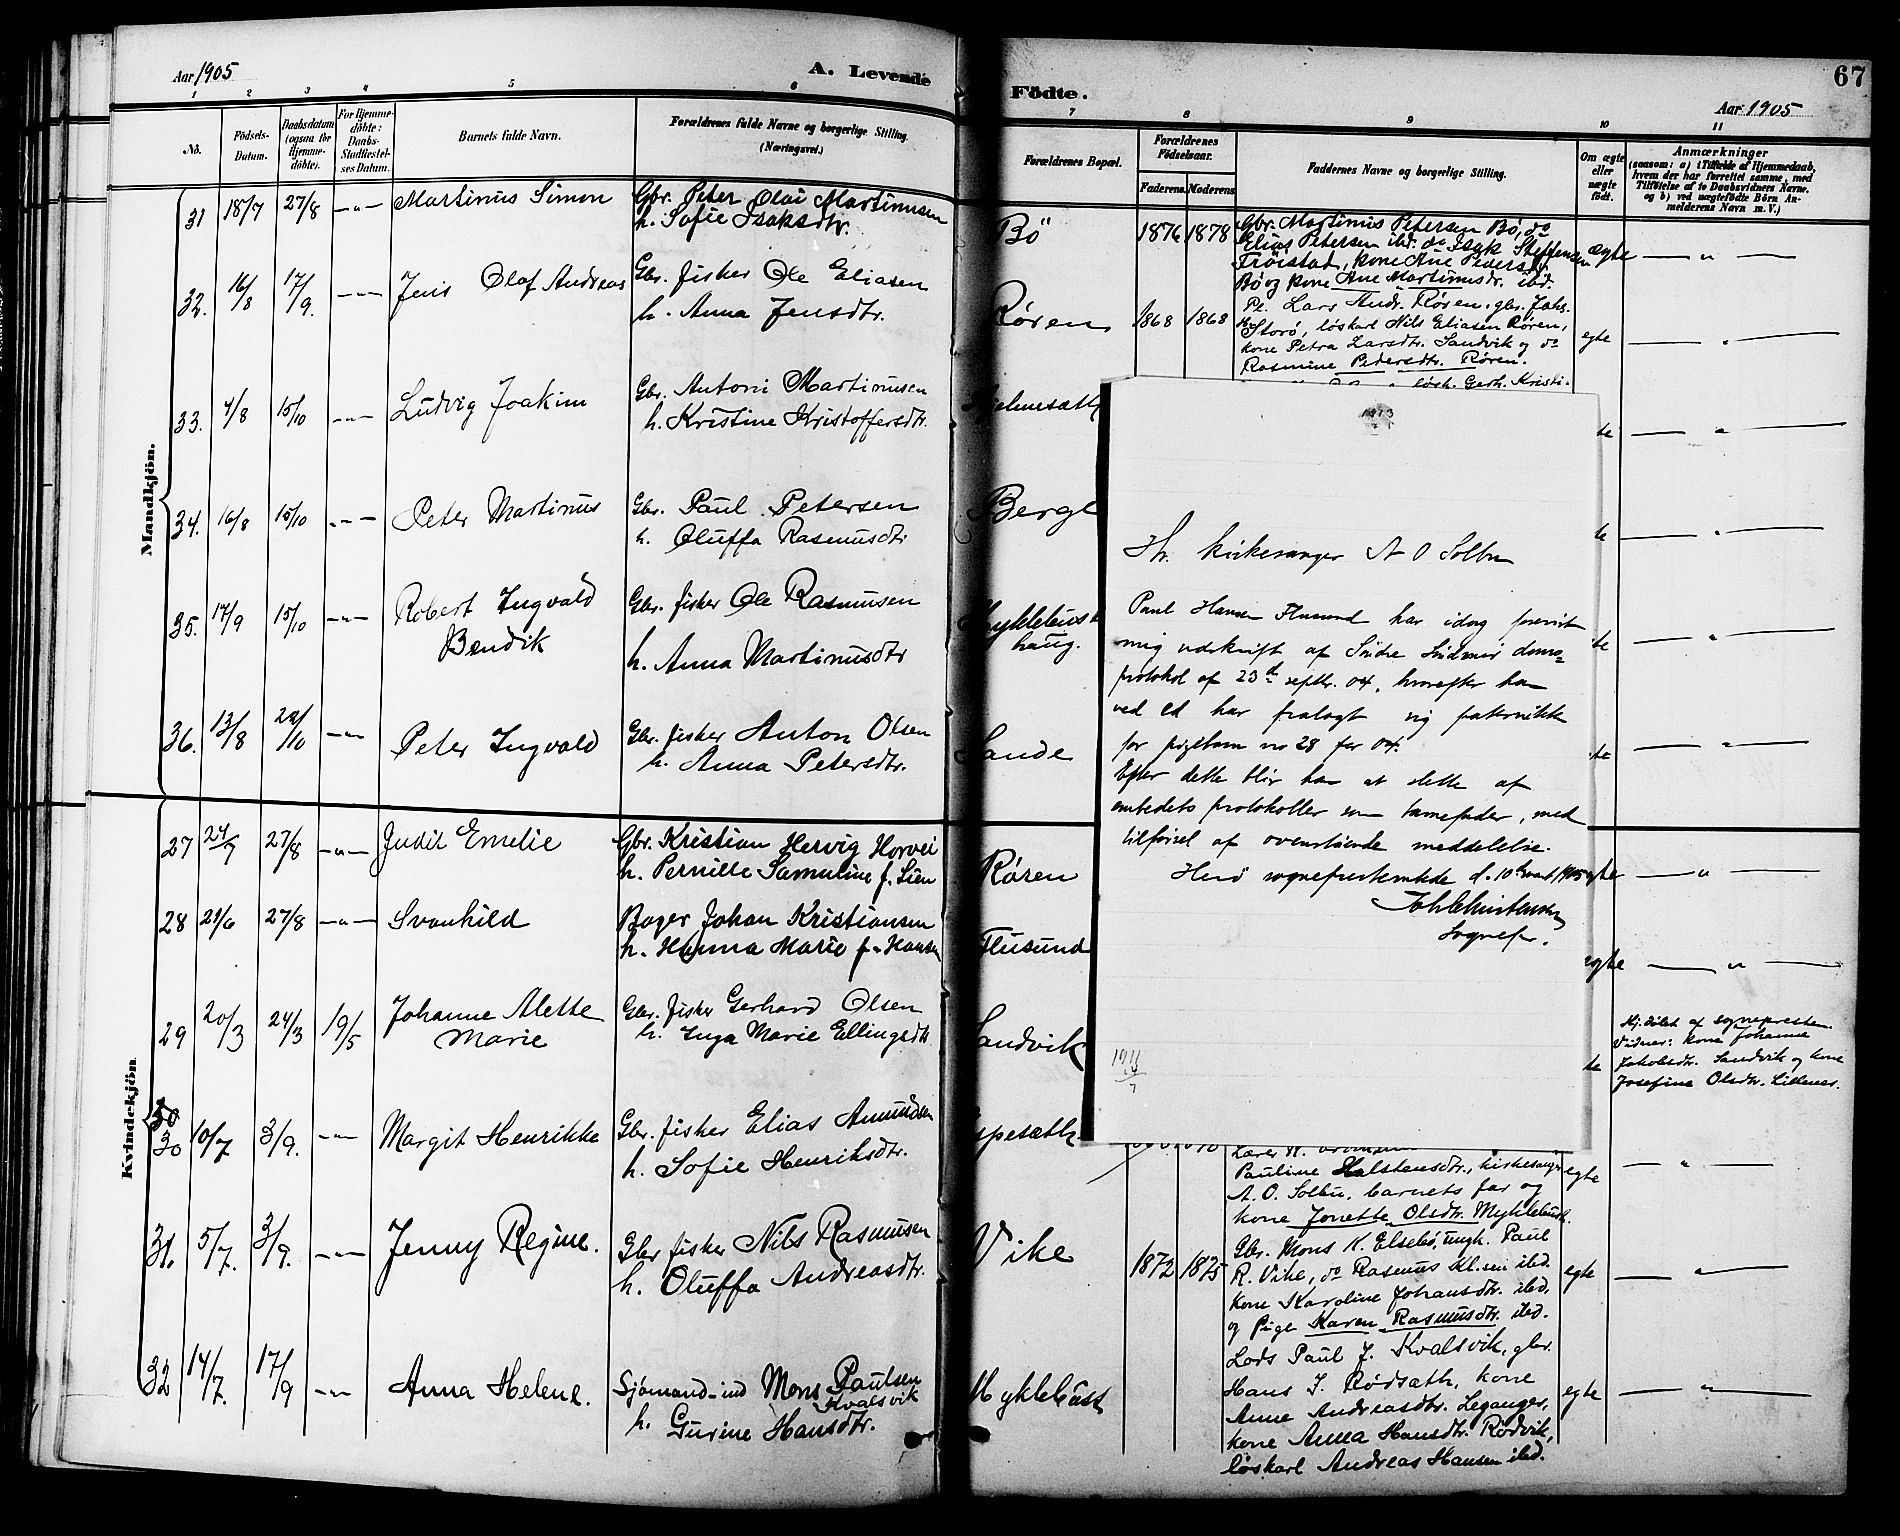 Aar 1905
A. Levende
1 2 3 4 5 6
No.
Födsels-Datum.
Daabsdatum (ogsaa for Hjemme-døbte).
For Hjemme-døbte: Daabs-Stadfestel-ses Datum.
Barnets fulde Navn.
Forældrenes fulde Navne og borgerlige Stilling. (Næringsvei.)
Mandkjön.
31 18/7 27/8 -"- Martinus Simon Gbr. Peter Olai Martinusen
h. Sofie Isaksdtr.
32. 16/8 17/9. -"- Jens Olaf Andreas Gbr. fisker Ole Eliasen
h. Anna Jensdtr.
33. 4/8 15/10 -"- Ludvig Joakim Gbr. Antoni Martinusen
h. Kristine Kristoffersdtr.
34. 16/8 15/10 -"- Peter Martinus Gbr. Paul Petersen
h. Oluffa Rasmusdtr
35. 17/9 15/10 -"- Robert Ingvald Gbr. fisker Ole Rasmusen
Bendik h. Anna Martinusdtr
36. 13/8 /10 -"- Peter Ingvald Gbr. fisker Anton Olsen
h. Anna Petersdtr.
Kvindekjön
27 24/7 27/8 -"- Judit Emelie Gbr. Kristian Hervig Horvei
h. Pernille Samuline f. Lien
28 21/6 27/8 -"- Svanhild Bager Johan Kristiansen
h. Hanna Marie f. Hansen
29 20/3 24/3 19/5 Johanne Alette Gbr. fisker Gerhard Olsen
Marie h. Inga Marie Ellingsdtr
30
30 10/7 3/9. -"- Margit Henrikke Gbr. fisker Elias Amundsen
h. Sofie Henriksdtr.
31. 5/7. 3/9. -"- Jenny Regine. Gbr fisker Nils Rasmusen
h. Oluffa Andreasdtr.
32 14/7. 17/9 -"- Anna Helene. Sjömand-ind Mons Paulsen
Kvalsvik
h. Gurine Hansdtr.
Födte.
67
Aar 1905
7 8 9 10 11
Forældrenes Bopæl.
Forældrenes Födselsaar.
Faderens. Moderens.
Faddernes Navne og borgerlige Stilling.
Om ægte eller uægte födt.
Anmærkninger
(saasom: a) i Tilfælde af Hjemmedaab,
hvem der har forrettet samme, med
Tilföielse af to Daabsvidners Navne.
og b) ved uægtefödte Börn An-
melderens Navn m. V.)
Bö 1876 1878 Gbr. Martinus Petersen Bö, do
Elias Petersen ibd. do Isak Steffensen ægte — " —
Fröistad, kone Ane Pedersdtr.
Bö og kone Ane Martinusdr. ibd.
Røren 1868 1868 Pl. Lars Andr. Røren, gbr. Johs.
Storö, löskarl Nils Eliasen Røren,
kone Petra Larsdtr. Sandvik og do egte — " —
Rasmine Pedersdtr. Røren.
lösk. Gerh. Kristi-
te — " —
Berge
te — " —
Myklebust
haug. te — " —
Sande te — " —
Røren egte — " —
Flusund egte — " —
Sandvik te Hj. döbt af sognepresten.
Vidner: kone Johanne
Jakobsdtr. Sandvik og kone
Josefine Olsdtr. Lillenes.
Espesæth.
Pauline Halstensdtr., kirkesanger
A. O. Solbu, barnets far og egte — " —
kone Jonette Olsdtr. Myklebust.
Vike 1872 1875 Gbr. Mons K. Elsebö, ungk. Paul
R. Vike, do Rasmus Kl.sen ibd. egte — " —
kone Karoline Johansdtr. ibd,
og Pige Karen Rasmusdtr. ibd.
Myklebust Lods Paul J. Kvalsvik, gbr.
Hans J. Rödsæth, kone egte — " —
Anne Andreasdtr. Leganger,
kone Anna Hansdtr. Rödvik,
löskarl Andreas Hansen ibd.
Hr. kirkesanger A O Solbu
Paul Hansen Flusund har idag forevist
mig udskrift af Söndre Söndmör doms=
protokol af 23d septbr. 04, hvorefter han
ved ed har fralagt sig paternitet
for pigebarn no 28 for 04.
Efter dette blir han at slette af
embedets protokoller som barnefader, med
tilförsel af ovenstående meddelelse.
Herö sogneprestembede d. 10de 1905
Sognepr.